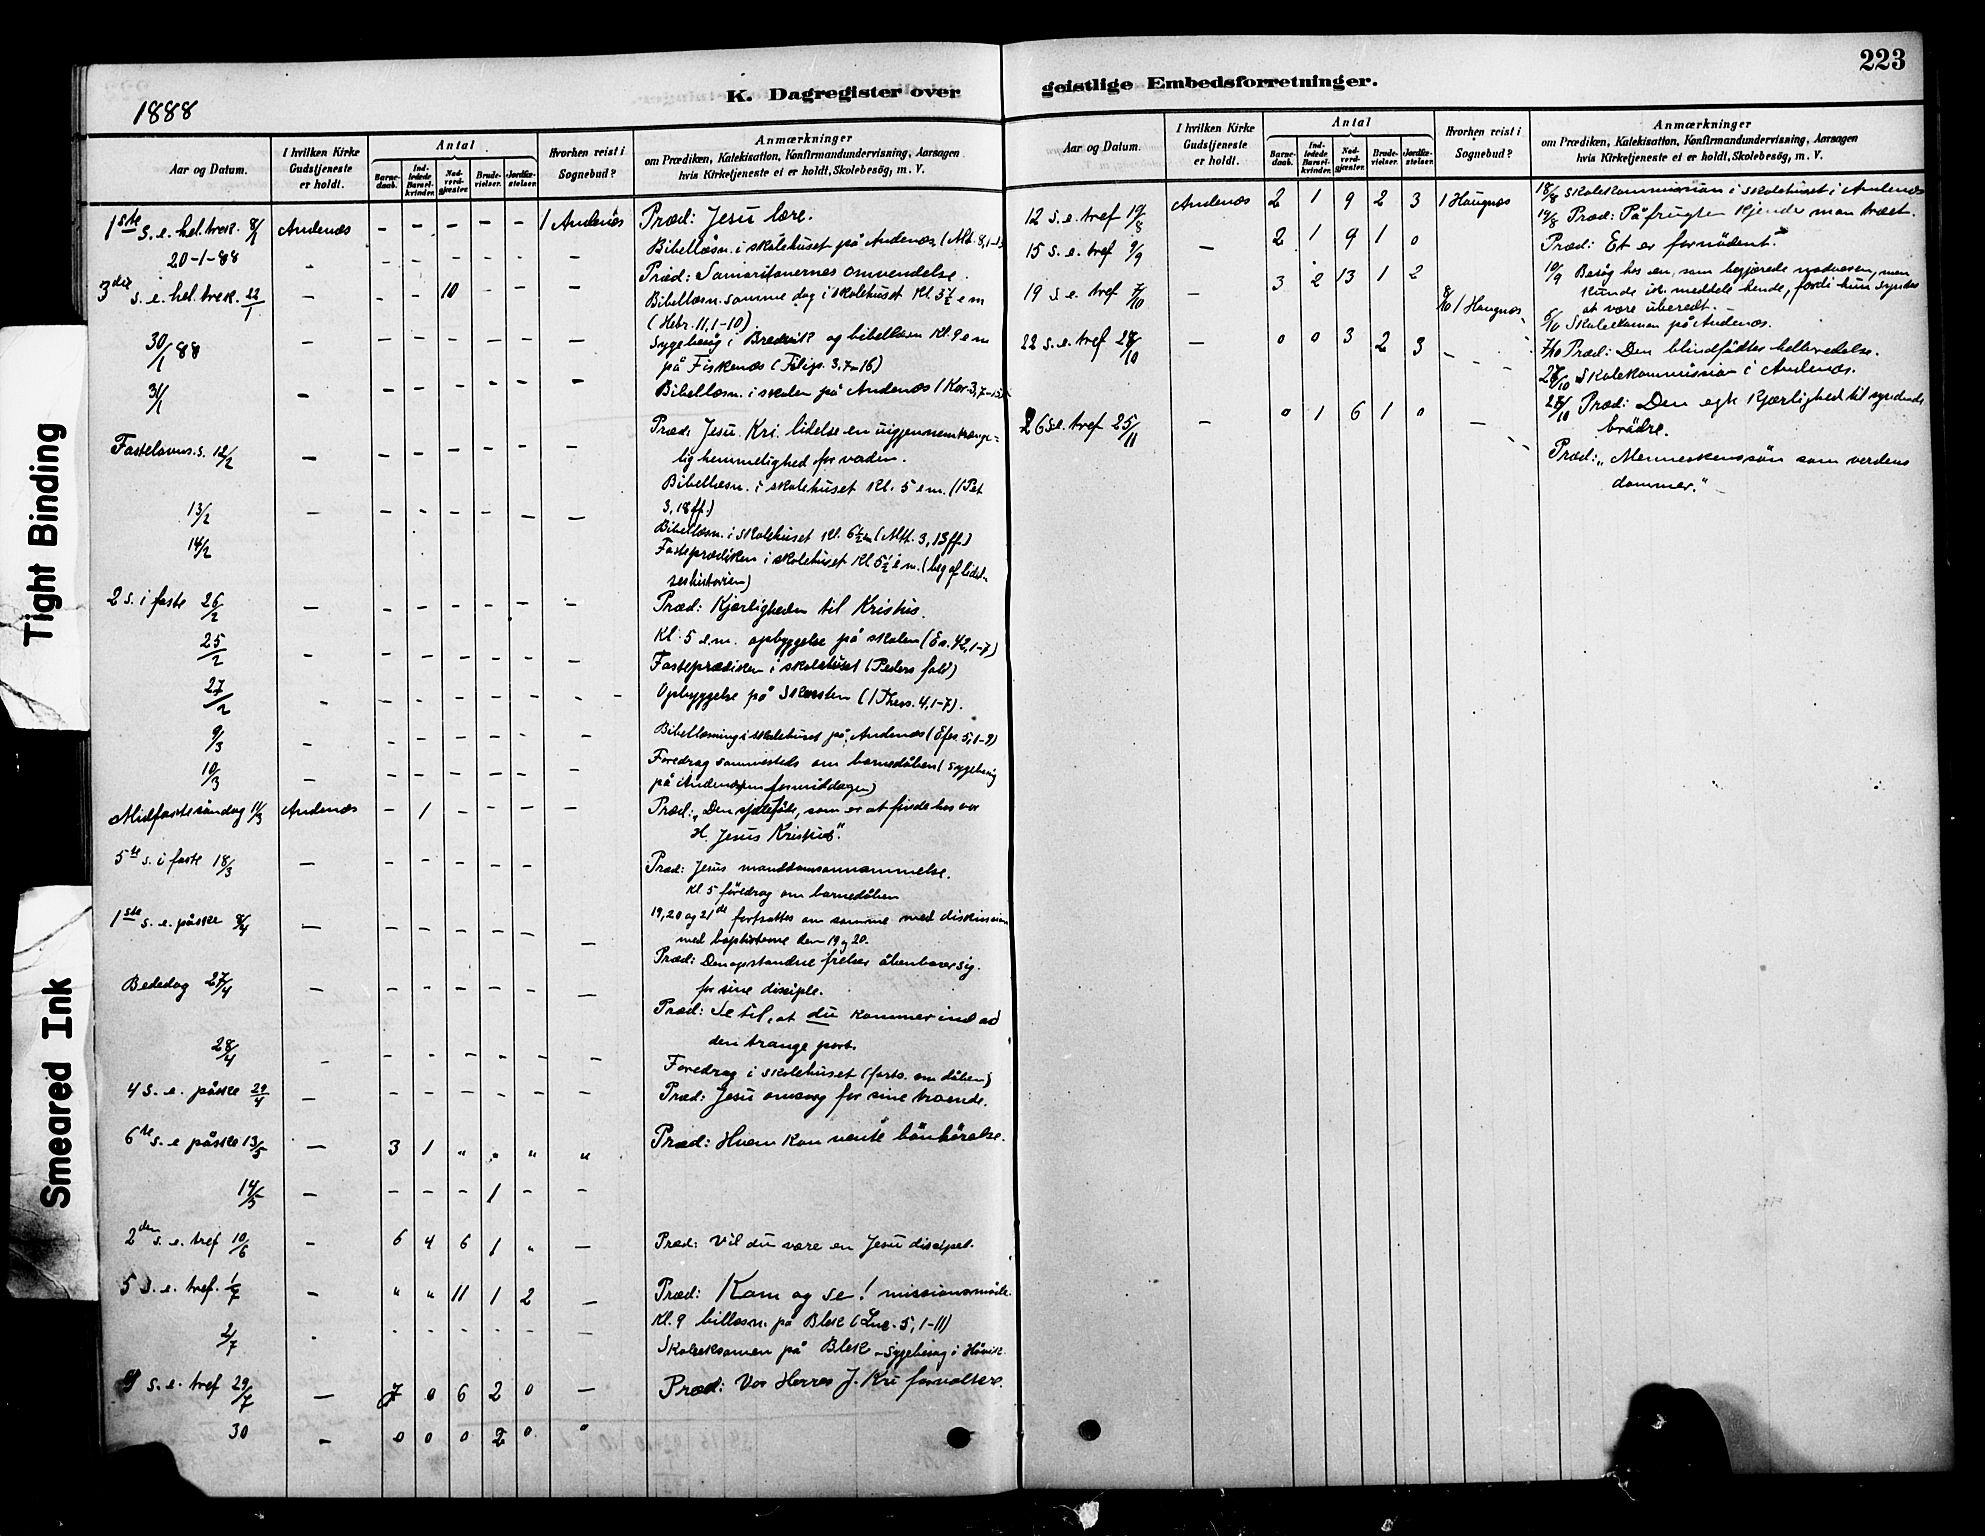 223
K. Dagregister over geistlige Embedsforretninger.
1888
Aar og Datum.
I hvilken Kirke Gudstjeneste er holdt.
Antal
Barnedaab.
Indledede Barselkvinder.
Nadverdgjester.
Brudevielser.
Jordfæstelser.
Hvorhen reist i Sognebud?
Anmærkninger
om Prædiken, Katekisation, Konfirmandundervisning, Aarsagen
hvis Kirketjeneste ei er holdt, Skolebesøg, m. V.
1ste s. e. hel. trek. 8/1 Andenæs - - - - - 1 Andenæs Præd: Jesu lære.
20-1-88 - - - - - - - Bibellæsn. i skolehuset på Andenæs
3die s. e. hel. trek. 22/1 - - - 10 - - - Præd: Samaritanernes omvendelse.
Bibellæsn. samme dag i skolehuset Kl 3½ em
(Hebr. 11, 1-10)
30/1 88 - - - - - - - Sygebesøg i Bredvik og bibellæsn Kl. 9 em
på Fiskenæs (Filip. 3, 7-16)
31/1 - - - - - - - Bibellæsn. i skolen på Andenæs
Fastelavns. s. 12/2 - - - - - - - Præd: Jesu Kri. lidelse en uigjennemtrænge=
lig hemmelighed for verden.
Bibellæsn. i skolehuset Kl. 5 em. (1 Pet
3, 18 ff.)
13/2 - - - - - - - Bibellæsn. i skolehuset Kl. 6½ em (Mtt. 3, 13 ff.)
14/2 Fasteprædiken i skolehuset Kl 5½ em. (beg af lidel-
seshistorien)
2 s. i faste 26/2 - - - - - - - Præd: Kjærligheden til Kristus.
25/2 - - - - - - - Kl. 5 em. opbyggelse på skolen (Es. 42, 1-7)
Fasteprædiken i skolehuset (Peders fald)
27/2 - - - - - - - Opbyggelse på Skarsten (1 Thess. 4, 1-7).
9/3 - - - - - - - Bibellæsning i skolehuset på Andenæs (Efes. 5, 1-9)
10/3 - - - - - - - Foredrag sammesteds om barnedåben (Sygebesøg
på Andenæs om formiddagen)
Midfastesöndag 11/3 Andenæs - 1 - - - - Præd: „Den sjæleføde, som er at finde hos vor
H. Jesus Kristus".
5te s. i faste 18/3 - - - - - - - Præd: Jesus manddomsannammelse.
Kl. 5 föredrag om barnedåben
19, 20 og 21de fortsattes om samme med diskussion
med baptisterne den 19 og 20.
1ste s. e. påske 8/4 - - - - - - - Præd: Den opstandne frelser åbenbarer sig.
for sine disciple.
Bededag 27/4 - - - - - - - Præd: Se til, at du kommer ind ad
den trange port.
28/4 - - - - - - - Foredrag i skolehuset (forts. om dåben)
4 s. e. påske 29/4 - - - - - - - Præd: Jesu omsorg for sine troende.
6te s. e påske 13/5 - 3 1 " " " " Præd: Hvem kan vente bönhörelse.
14/5 - - - - 1 - -
2den s. e. tref 10/6 - 6 4 6 1 " - Præd: Vil du være en Jesu discipel.
5 s. e. tref. 1/7 - " " 11 1 2 - Præd: Kom og se! missionsmöde.
Kl. 9 billæsn. på Blek (Luc. 5, 1-11)
2/7 - - - - - - - Skoleeksamen på Blek - Sygebesøg i Håvik
9 s. e. tref 29/7 - 7 0 6 2 0 - Præd: Vor Herres J. Kri forvaltere.
30 - 0 0 0 2 0 "
Aar og Datum.
I hvilken Kirke Gudstjeneste er holdt.
Antal
Barnedaab.
Indledede Barselkvinder.
Nadverdgjester.
Brudevielser.
Jordfæstelser.
Hvorhen reist i Sognebud?
Anmærkninger
om Prædiken, Katekisation, Konfirmandundervisning, Aarsagen
hvis Kirketjeneste ei er holdt, Skolebesøg, m. V.
18/8 Skolekommission i skolehuset i Andenæs
12 s. e. tref 19/8 Andenæs 2 1 9 2 3 1 Haugnæs 19/8 Præd: På frugten kjender man træet.
15 s. e. tref 9/9 - 2 1 9 1 0 Præd: Et er fornödent.
10/9 Besøg hos en, som begjærede nadveren, men
kunde ik meddele hende, fordi hun syntes
at være uberedt.
19 s. e. tref 7/10 - 3 2 13 1 2 8/10 1 Haugnæs
6/10 Skoleeksamen på Andenæs.
7/10 Præd: Den blindfödtes helbredelse.
22 s. e. tref 28/10 - 0 0 3 2 3 - 27/10 Skolekommission i Andenæs.
28/10 Præd: Den egte Kjærlighed til syndende
brödre.
26 s.e. tref 25/11 - 0 1 6 1 0 - Præd: „Menneskens sön som verdens
dommer."
Tight Binding
Smeared Ink